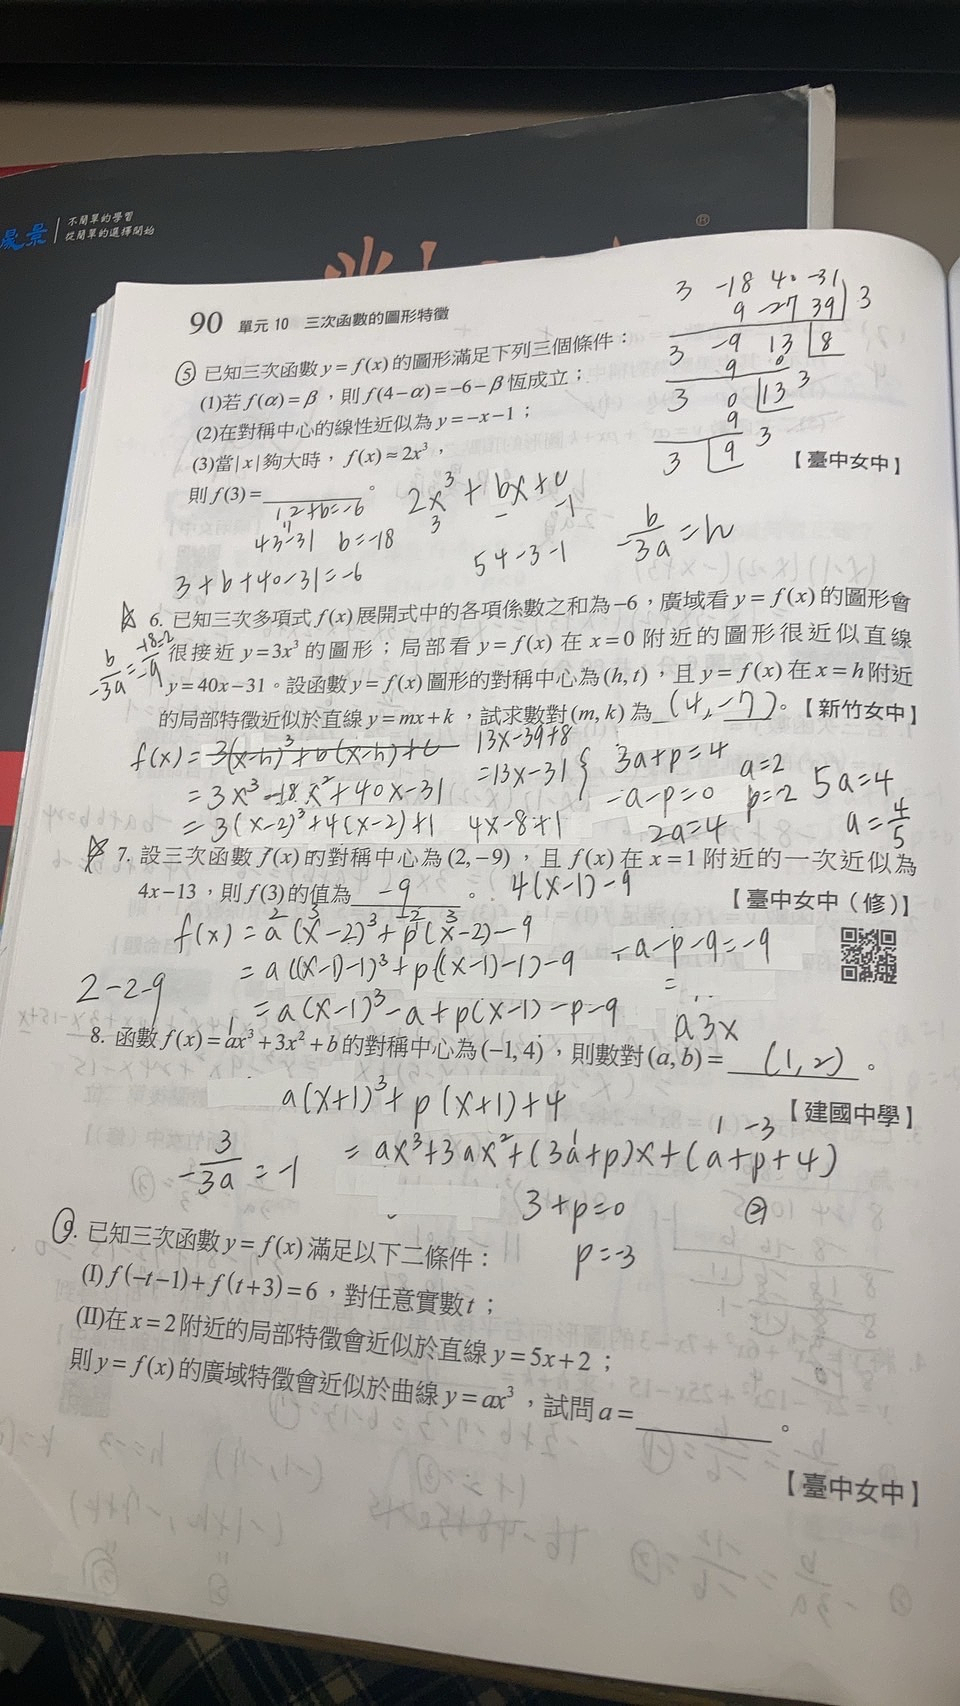 晨景
不簡單的學習
從簡單的選擇開始
®
90 單元10 三次函數的圖形特徵
3 -18 40 -31
9 -27 39 3
3 -9 13 8
9 0
3 0 13 3
9
3 9 3
5 已知三次函數y=f(x)的圖形滿足下列三個條件：
(1)若f(α)=β，則f(4-α)=-6-β恆成立；
(2)在對稱中心的線性近似為y=-x-1；
(3)當|x|夠大時，f(x)≈2x³，
【臺中女中】
則f(3)=__________。
12+b=-6
2x³+bx+c
3 - -1
43-31 b=-18
54-3-1
b/-3a=h
3+b+40-31=-6
6. 已知三次多項式f(x)展開式中的各項係數之和為-6，廣域看y=f(x)的圖形會
很接近y=3x³的圖形；局部看y=f(x)在x=0附近的圖形很近似直線
b/-3a=-18/-9=2
y=40x-31。設函數y=f(x)圖形的對稱中心為(h,t)，且y=f(x)在x=h附近
的局部特徵近似於直線y=mx+k，試求數對(m,k)為(4,-7)。【新竹女中】
f(x)=3(x-h)³+b(x-h)+c 13x-39+8
=3x³-18x²+40x-31 =13x-31
=3(x-2)³+4(x-2)+1 4x-8+1
3a+p=4 a=2 5a=4
-a-p=0 p=-2
2a=4 a=4/5
7. 設三次函數f(x)的對稱中心為(2,-9)，且f(x)在x=1附近的一次近似為
4x-13，則f(3)的值為-9。 4(x-1)-9
【臺中女中(修)】
2 3 -2 3
f(x)=a(x-2)³+p(x-2)-9
=a((x-1)-1)³+p((x-1)-1)-9 -a-p-9=-9
2-2-9
=a(x-1)³-a+p(x-1)-p-9
a3x
1
8. 函數f(x)=ax³+3x²+b的對稱中心為(-1,4)，則數對(a,b)=(1,2)。
a(x+1)³+p(x+1)+4
【建國中學】
1 1 -3
-3/3a=-1 =ax³+3ax²+(3a+p)x+(a+p+4)
3+p=0 ②
p=-3
9. 已知三次函數y=f(x)滿足以下二條件：
(I)f(-t-1)+f(t+3)=6，對任意實數t；
(II)在x=2附近的局部特徵會近似於直線y=5x+2；
則y=f(x)的廣域特徵會近似於曲線y=ax³，試問a=__________。
【臺中女中】